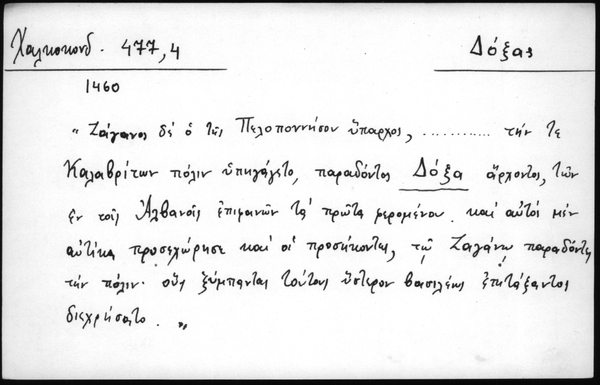 Χαλκοκονδ. 477,4
Δόξας
1460
"Ζάγανος δὲ ὁ τῆς Πελοποννήσου ὕπαρχος, ............ τήν τε
Καλαβρύτων πόλιν ὑπηγάγετο, παραδόντος Δόξα ἄρχοντος, τῶν
ἐν τοῖς Ἀλβανοῖς ἐπιφανῶν τὰ πρῶτα φερομένου. καὶ αὐτός μὲν
αὐτίκα προσεχώρησε καὶ οἱ προσήκοντες, τῷ Ζαγάνῳ παραδόντες
τὴν πόλιν· οὓς ξύμπαντας τούτους ὕστερον βασιλέως ἐπιτάξαντος
διεχρήσατο."